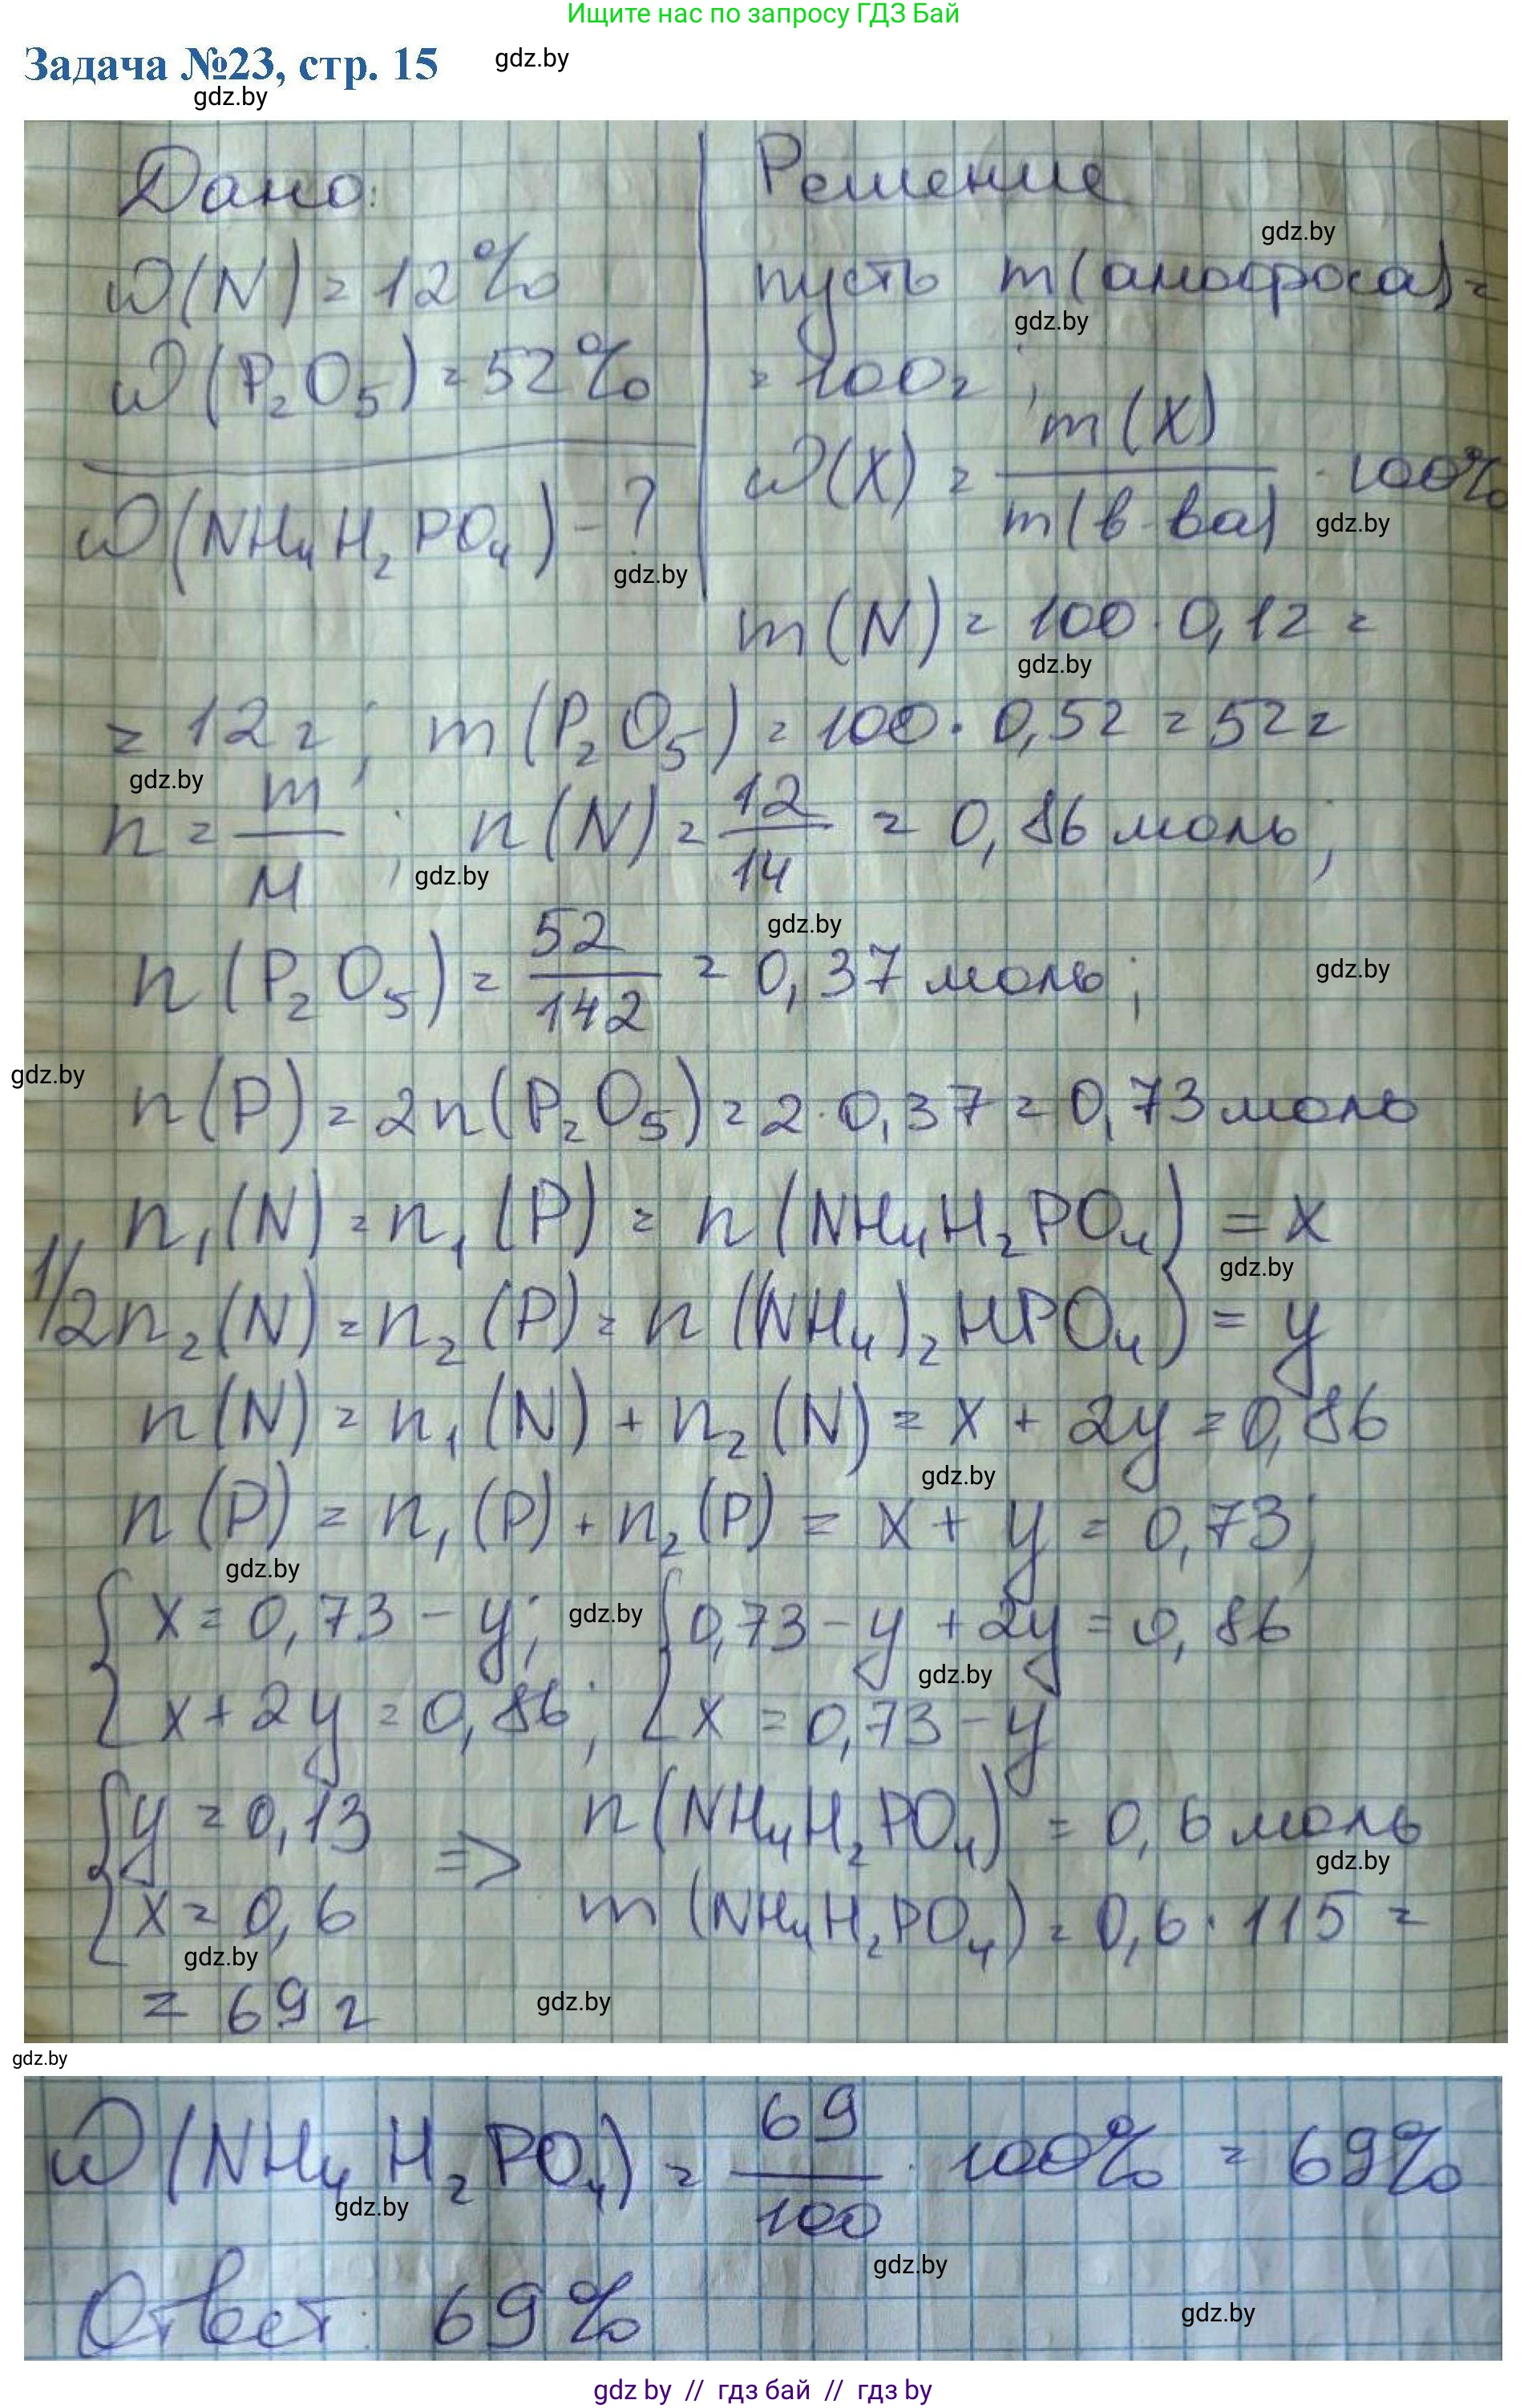 Ищите нас по запросу ГДЗ Бай
Задача №23, стр. 15
gdz.by
gdz.by
Дано:
Решение
ω(N) = 12%
gdz.by
пусть m(амофоса) =
ω(P₂O₅) = 52%
gdz.by
= 100г;
ω(NH₄H₂PO₄) - ?
ω(X) = m(X)/m(в-ва) · 100%
gdz.by
gdz.by
m(N) = 100 · 0,12 =
gdz.by
= 12г; m(P₂O₅) = 100 · 0,52 = 52г
gdz.by
n = m/M; n(N) = 12/14 = 0,86 моль;
gdz.by
gdz.by
n(P₂O₅) = 52/142 = 0,37 моль;
gdz.by
gdz.by
n(P) = 2n(P₂O₅) = 2 · 0,37 = 0,73 моль
n₁(N) = n₁(P) = n(NH₄H₂PO₄) = x
gdz.by
1/2n₂(N) = n₂(P) = n((NH₄)₂HPO₄) = y
n(N) = n₁(N) + n₂(N) = x + 2y = 0,86
gdz.by
n(P) = n₁(P) + n₂(P) = x + y = 0,73;
gdz.by
{x = 0,73 - y; {0,73 - y + 2y = 0,86
gdz.by
gdz.by
x + 2y = 0,86; x = 0,73 - y
{y = 0,13 => n(NH₄H₂PO₄) = 0,6 моль
gdz.by
x = 0,6 m(NH₄H₂PO₄) = 0,6 · 115 =
gdz.by
= 69г
gdz.by
gdz.by
ω(NH₄H₂PO₄) = 69/100 · 100% = 69%
gdz.by
gdz.by
Ответ: 69%
gdz.by
gdz by // гдз бай // гдз by